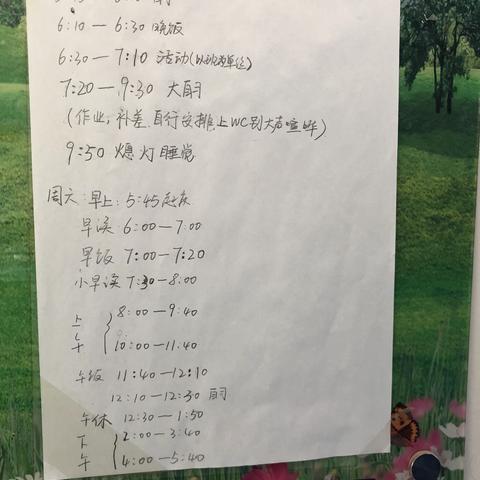 6:10 — 6:30 晚饭
6:30 — 7:10 活动(以班为单位)
7:20 — 9:30 大自习
(作业, 补差, 自行安排, 上WC别大声喧哗)
9:50 熄灯睡觉
周六: 早上: 5:45起床
早读 6:00 — 7:00
早饭 7:00 — 7:20
小早读 7:30 — 8:00
上午 { 8:00 — 9:40
10:00 — 11:40
午饭 11:40 — 12:10
12:10 — 12:30 自习
午休 12:30 — 1:50
下午 { 2:00 — 3:40
4:00 — 5:40